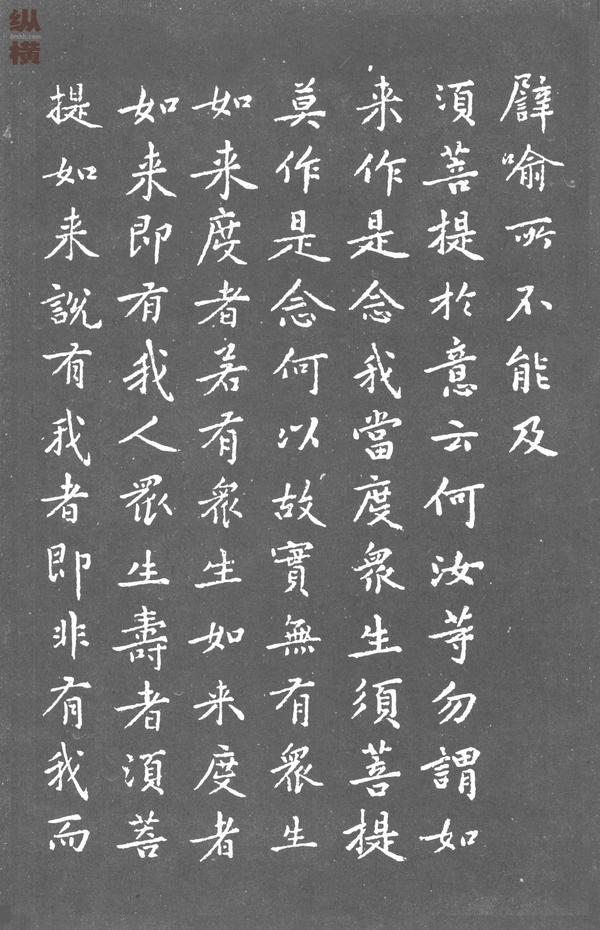 纵
横
譬喻所不能及
須菩提於意云何汝等勿謂如
来作是念我當度眾生須菩提
莫作是念何以故實無有眾生
如来度者若有眾生如来度者
如来即有我人眾生壽者須菩
提如来說有我者即非有我而